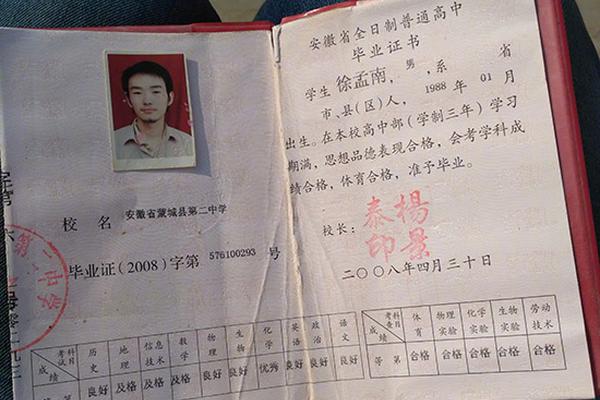 校 名 安徽省蒙城县第二中学
毕业证(2008)字第 576100293 号
第二中学
考试科目 历史 地理 信息技术 数学 物理 生物 化学 英语 政治 语文
成绩 良好 及格 及格 及格 良好 良好 优秀 良好 良好 良好
安徽省全日制普通高中
毕业证书
学生 徐孟南，男，系 省
市、县(区)人，1988 年 01 月
出生。在本校高中部(学制三年)学习
期满，思想品德表现合格，会考学科成
绩合格，体育合格，准予毕业。
校长： 杨景泰印
二〇〇八年四月三十日
考查科目 体育 物理实验 化学实验 生物实验 劳动技术
成绩 等第 合格 合格 合格 合格 合格